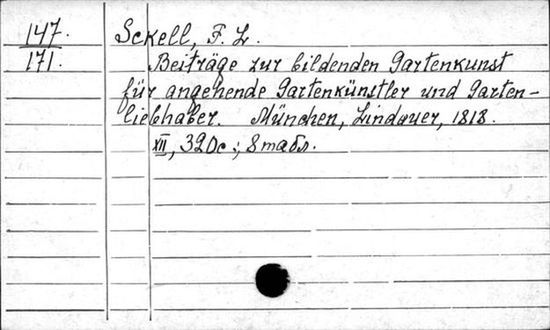 147.
171.
Sckell, F. L.
Beiträge zur bildenden Gartenkunst
für angehende Gartenkünstler und Garten-
liebhaber. München, Lindauer, 1818.
XII, 320с.; 8 табл.